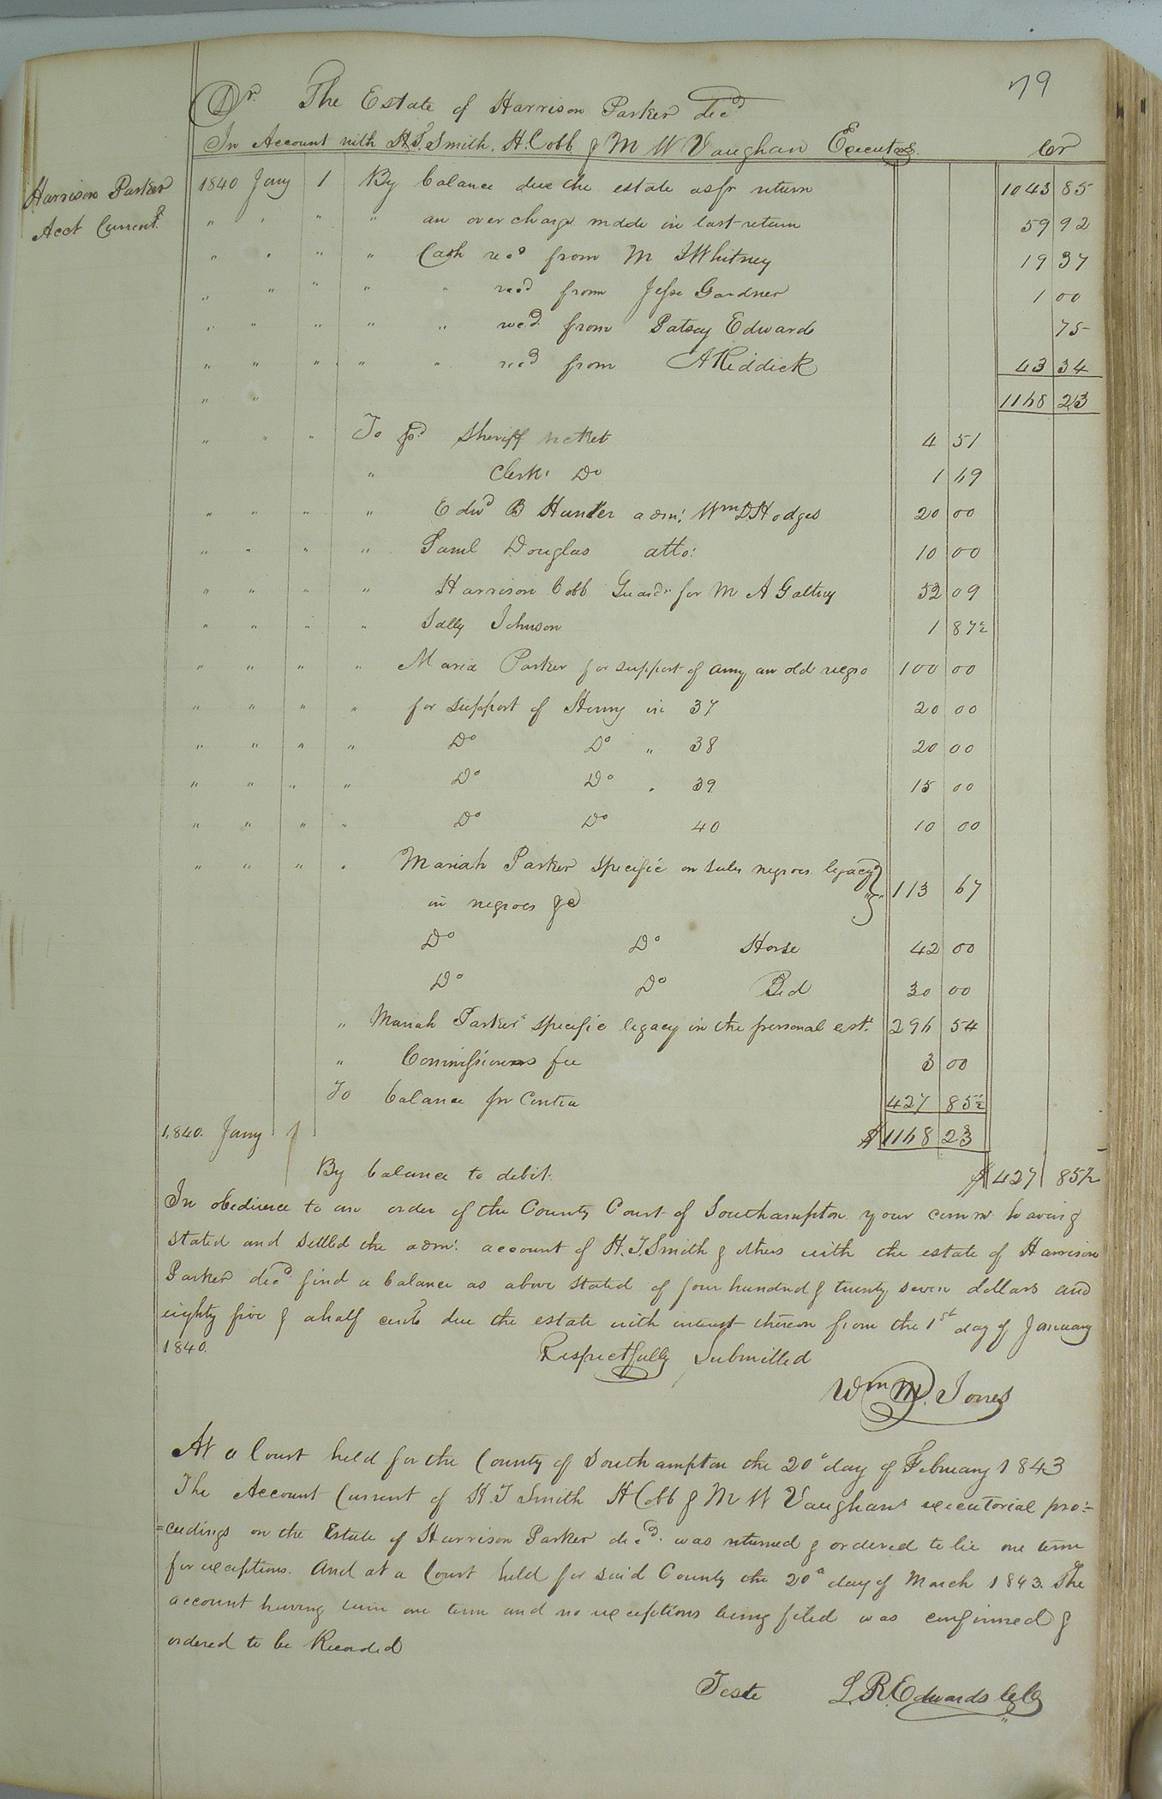 79
Dr. The Estate of Harrison Parker decd
In Account with H.T. Smith, H. Cobb & M W Vaughan Executors Cr
Harrison Parker
Acct Current
1840 Jany 1 By balance due the estate as pr return 1043 85
" " " " an over charge made in last return 59 92
" " " " Cash recd from M J Whitney 19 37
" " " " " recd from Jesse Gardner 1 00
" " " " " recd from Patsey Edwards 75
" " " " " recd from A Riddick 43 34
" " 1168 23
" " " To pd Sheriff ticket 4 51
" Clerks Do 1 69
" " " " Edwd B Hunter adm: Wm D Hodges 20 00
" " " " Saml Douglas atto: 10 00
" " " " Harrison Cobb Guardn for M A Gatling 52 09
" " " " Sally Johnson 1 87½
" " " " Maria Parker for support of amy an old negro 100 00
" " " " for support of Henny in 37 20 00
" " " " Do Do " 38 20 00
" " " " Do Do " 39 15 00
" " " " Do Do 40 10 00
" " " " Mariah Parker specific on negroes legacy
in negroes &c 113 67
Do Do Horse 42 00
Do Do Bed 30 00
" Mariah Parkers specific legacy in the personal est. 296 54
" Commissioners fee 3 00
To balance pr Contra 427 85½
1840. Jany 1 $ 1168 23
By balance to debit. $ 427 85½
In obedience to an order of the County Court of Southampton your commr having
stated and settled the adm: account of H. T. Smith & others with the estate of Harrison
Parker decd find a balance as above stated of four hundred & twenty seven dollars and
eighty five & a half cents due the estate with interest thereon from the 1st day of January
1840.
Respectfully Submitted
Wm M. Jones
At a Court held for the County of Southampton the 20th day of February 1843
The Account Current of H. T Smith H Cobb & M W Vaughans executorial pro:=
=ceedings on the Estate of Harrison Parker decd. was returned & ordered to lie one term
for exceptions. And at a Court held for said County the 20th day of March 1843. The
account having lain one term and no exceptions being filed was confirmed &
ordered to be Recorded
Teste L. R. Edwards